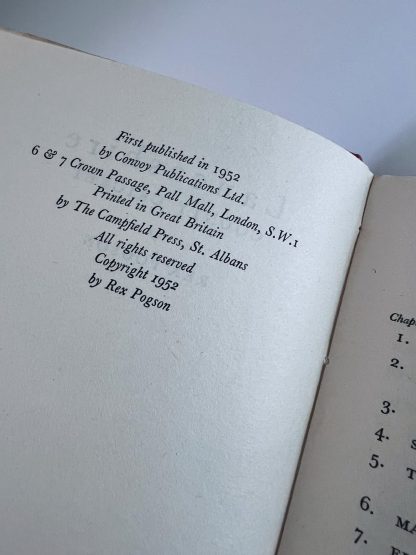 First published in 1952
by Convoy Publications Ltd.
6 & 7 Crown Passage, Pall Mall, London, S.W.1
Printed in Great Britain
by The Campfield Press, St. Albans
All rights reserved
Copyright 1952
by Rex Pogson
Chap
1.
2.
3.
4. S
5. T
6. MA
7.